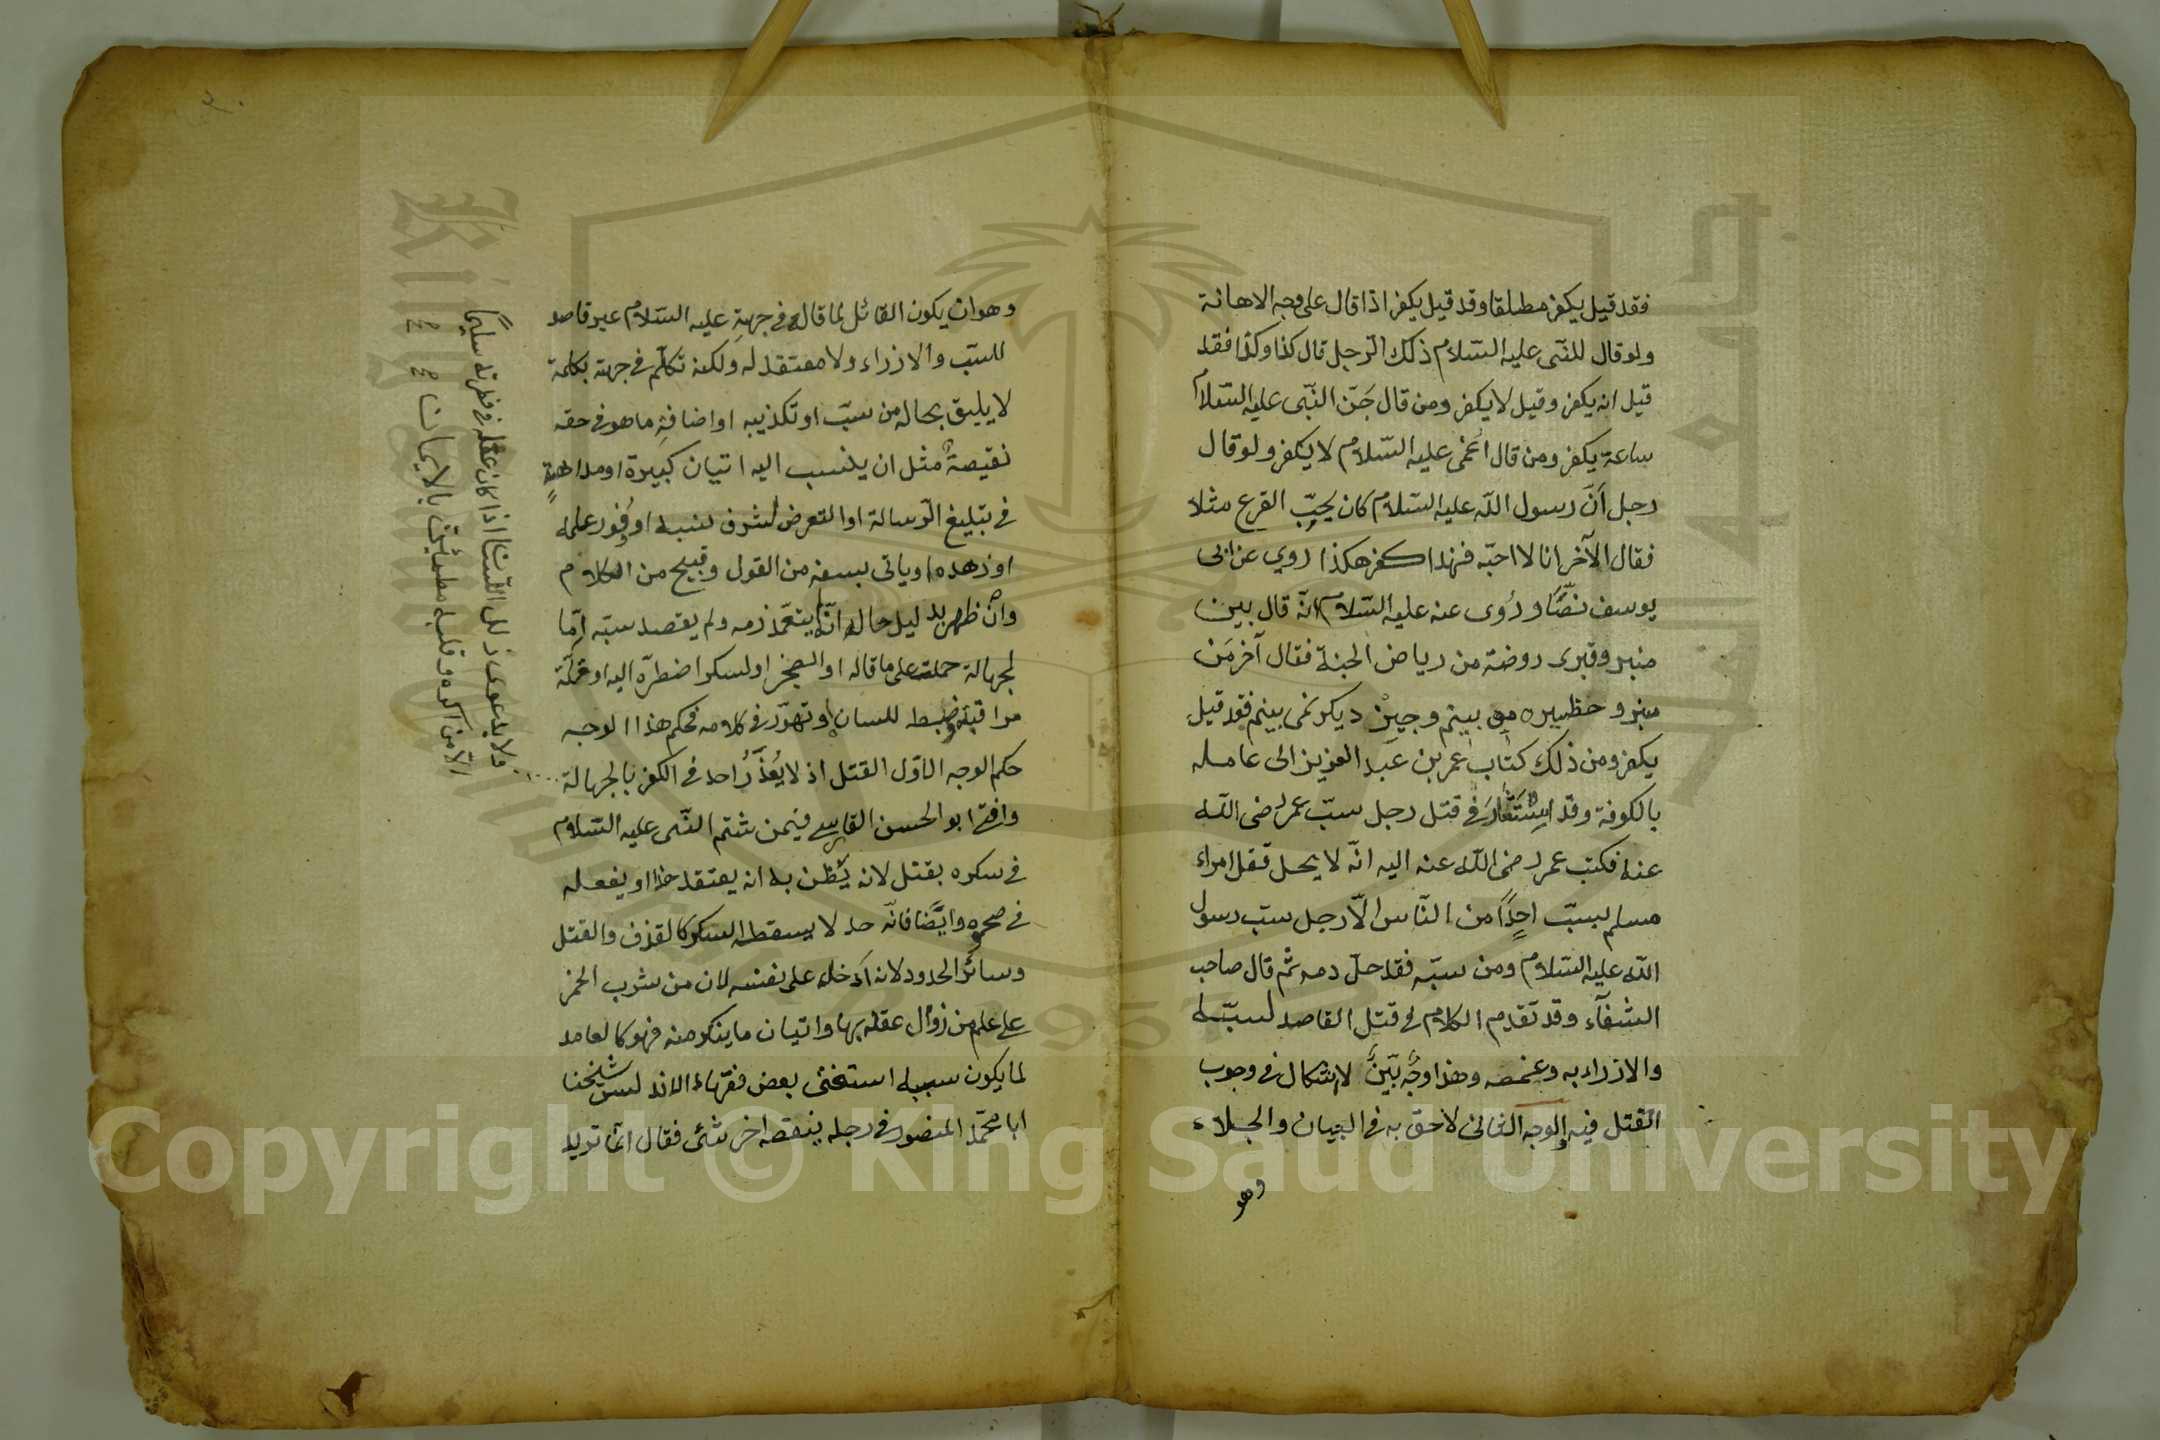 فقد قيل يكفر مطلقا وقد قيل يكفر اذا قال على وجه الاهانة
ولو قال للنبى عليه السّلام ذلك الرّجل قال كذا وكذا فقد
قيل انه يكفر وقيل لا يكفر ومن قال جَنّ النّبى عليه السّلام
ساعة يكفر ومن قال اغمى عليه السّلام لا يكفر ولو قال
رجل انّ رسول اللّه عليه السّلام كان يحبّ القرع مثلا
فقال الآخر انا لا احبّه فهذا كفر هكذا روي عن ابى
يوسف نصًّا و رُوى عنه عليه السّلام انّه قال بين
منبرى وقبرى روضة من رياض الجنة فقال آخر مَن
منبر و حظيره مى بينم و چيز ديكر نمى بينم فقد قيل
يكفر ومن ذلك كتاب عمر بن عبد العزيز الى عامله
بالكوفة وقد استشاره فى قتل رجل سبّ عمر رضى اللّه
عنه فكتب عمر رضى اللّه عنه اليه انّه لا يحل قتل امراء
مسلم بسبّ احدًا من النّاس الّا رجل سبّ رسول
اللّه عليه السّلام ومن سبّه فقد حلّ دمه ثم قال صاحب
الشفآء وقد تقدم الكلام فى قتل القاصد لسبّه
والازراء به وغمصه وهذا وجْهٌ بَيّنٌ لا اشكال فى وجوب
القتل فيه والوجه الثانى لاحق به فى البيان والجلاء
وهو
وهو ان يكون القائل لما قال فى جهته عليه السّلام غير قاصد
للسّب والازراء ولا معتقد له ولكنه تكلّم فى جهته بكلمة
لا يليق بحاله من سبّ او تكذيبه او اضافة ما هو فى حقه
نقيصةٌ مثل ان ينسب اليه اتيان كبيرة او مداهنةٍ
فى تبليغ الرّسالة او التعرض لشرف نسبه او وُفور علمه
او زهده او ياتى بسفه من القول وقبيح من الكلام
وان ظهر بدليل حاله انّه لم يتعمّد ذمه ولم يقصد سبّه امّا
لجهالة حملته على ما قاله او الضجر او لسكر اضطرّه اليه او قلّة
مراقبة وضبط للسان او تهوّر فى كلامه فحكم هذا الوجه
حكم الوجه الاوّل القتل اذ لا يُعْذَرُ احد فى الكفر بالجهالة
وافتى ابو الحسن القابسى فيمن شتم النّبى عليه السّلام
فى سكره بقتل لانه يُظن به انه يعتقد هذا او يفعله
فى صحوه وايضًا فانّه حد لا يسقطه السكر كالقذف والقتل
وسائر الحدود لانه ادخله على نفسه لان من شرب الخمر
على علم من زوال عقله بها واتيان ما ينكر منه فهو كالعامد
لما يكون سببه استفتى بعض فقهاء الاندلس شيخنا
ابا محمّد المنصور فى رجل ينقصه اخر شئ فقال انما تريد
ولا بدعوى زلل اللسان اذا كان عقله فى فطرته سليمًا
الّا من اكره وقلبه مطمئن بالايمان